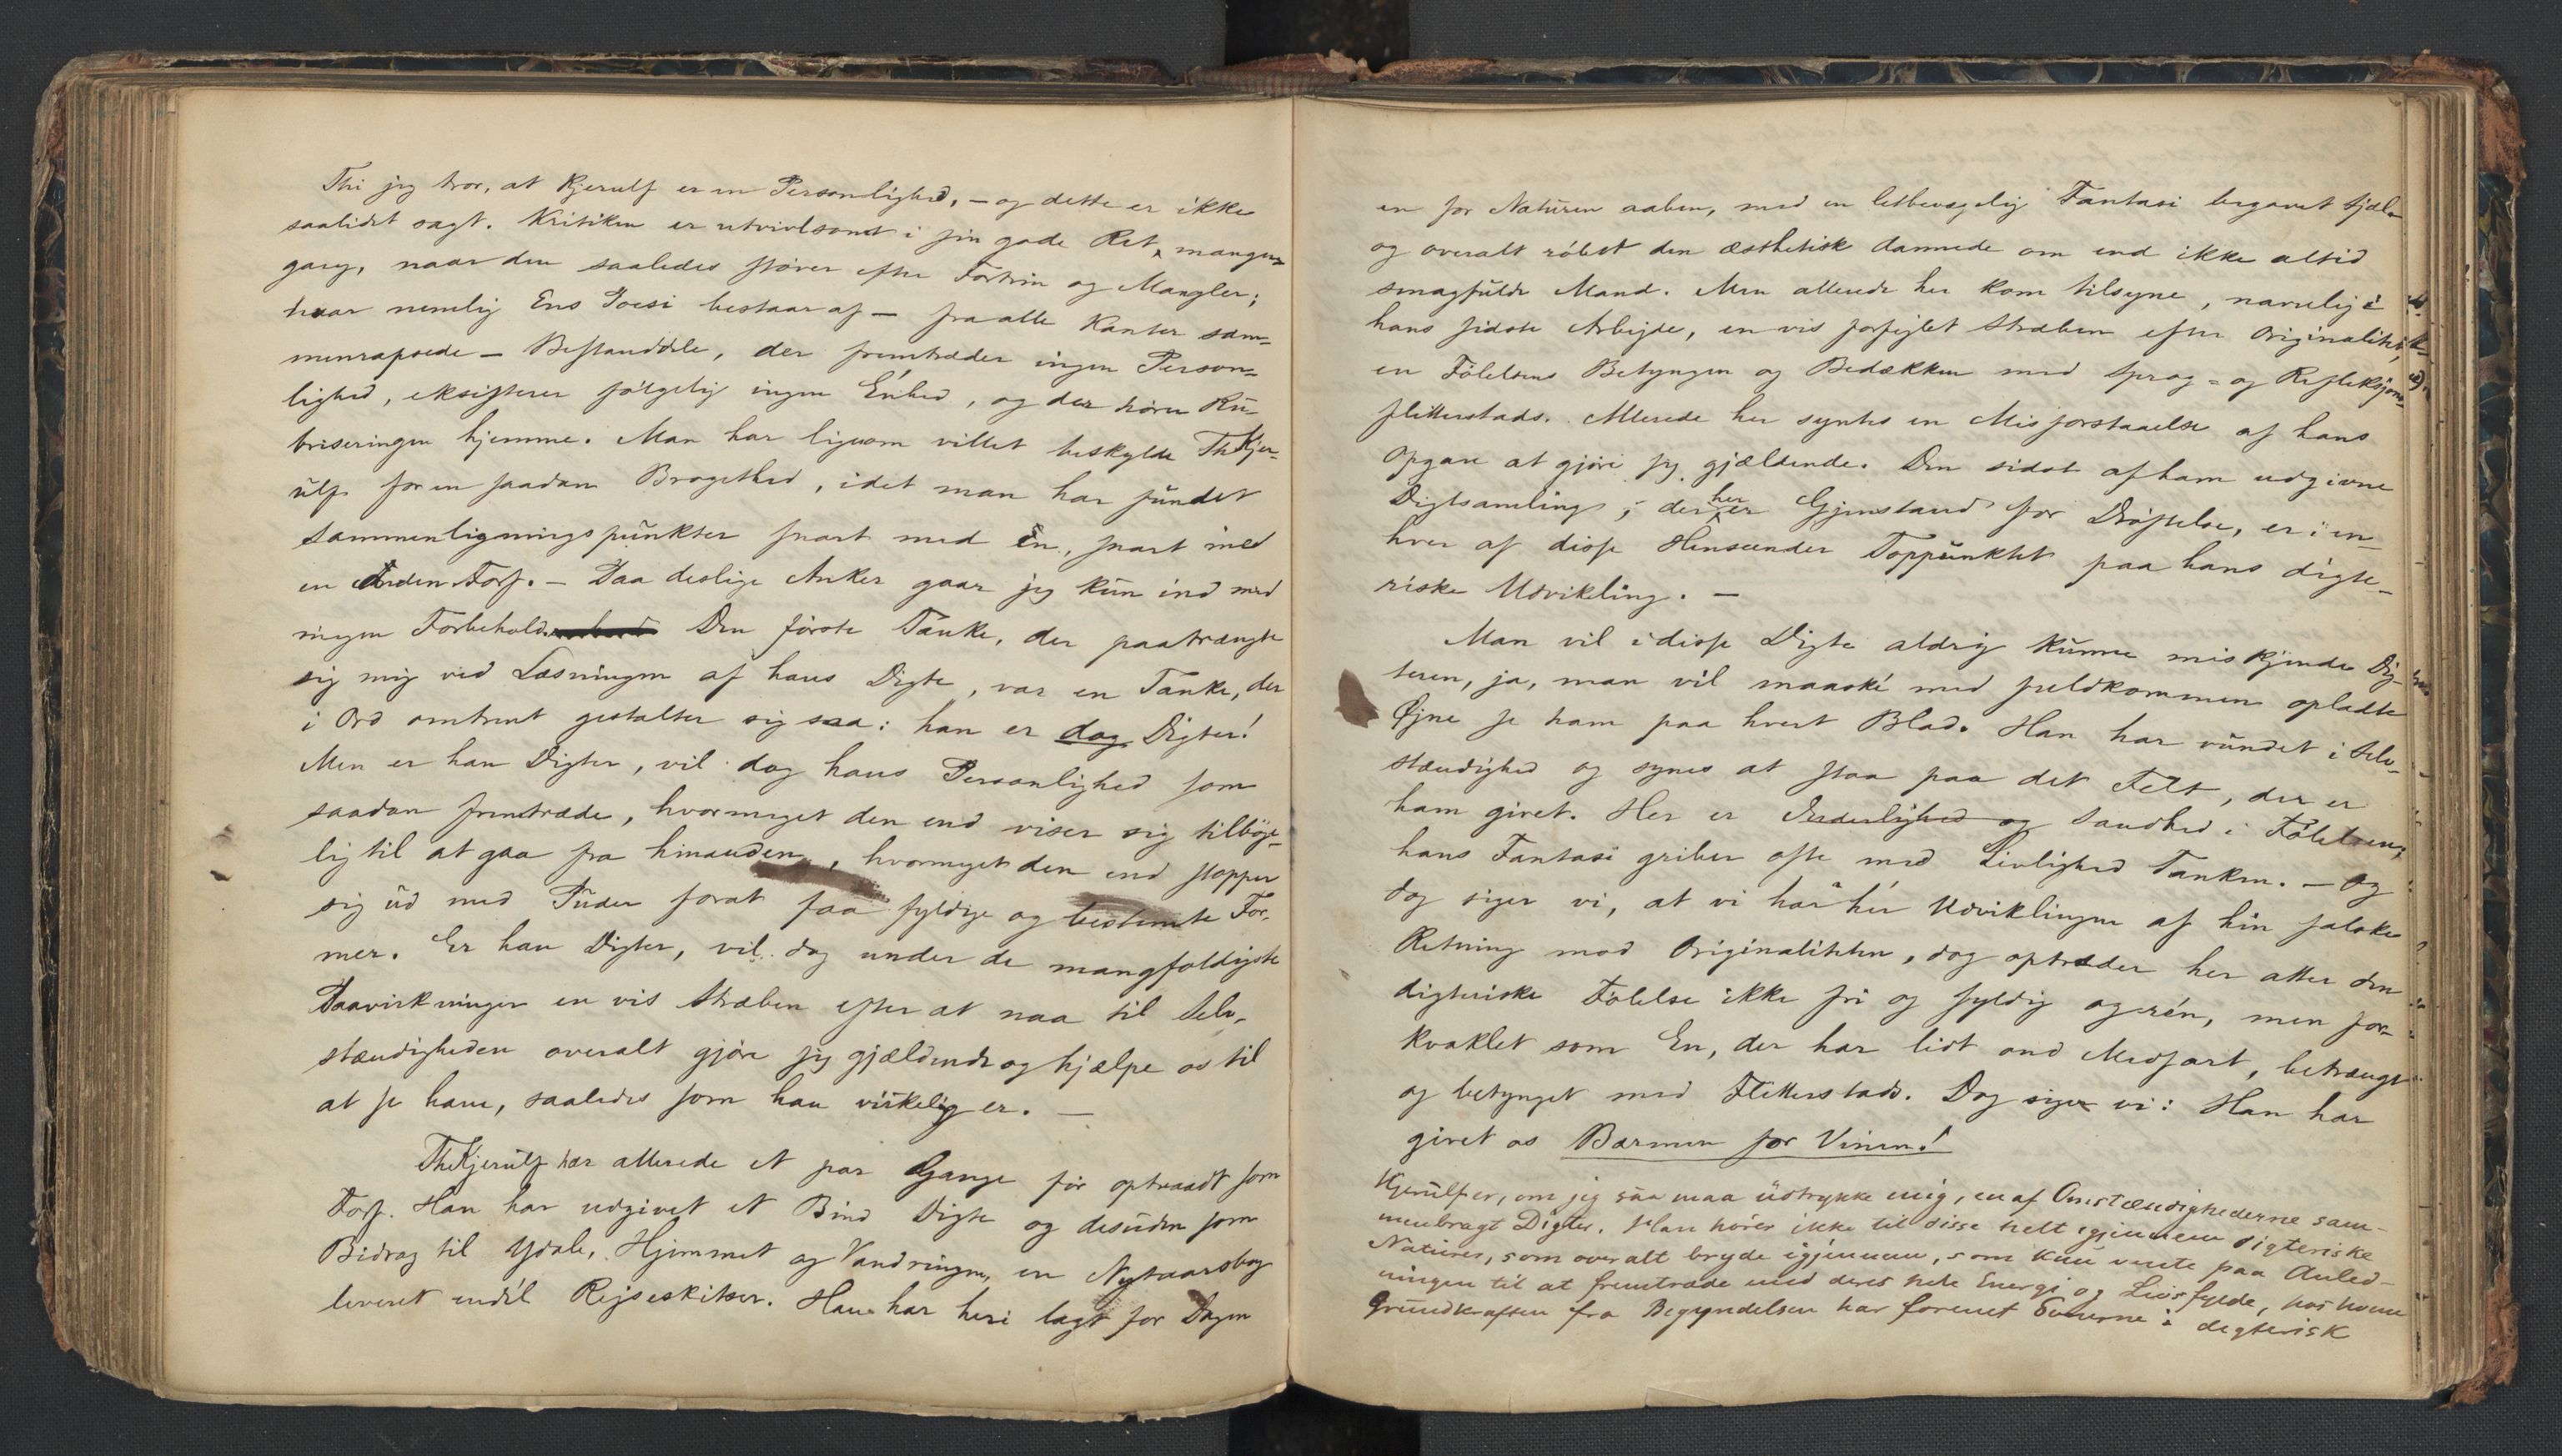 Thi jeg tror, at Kjerulf er en Personlighed, – og dette er ikke
saalidet sagt. Kritiken er utvivlsomt i sin gode Ret, mangen
gang, naar den saaledes støver efter Fortrin og Mangler;
hvor nemlig Ens Poesi bestaar af – fra alle Kanter sam-
menrapsede – Bestanddele, der fremtræder ingen Person-
lighed, eksisterer følgelig ingen Enhed, og der hører Ru-
briseringen hjemme. Man har ligesom villet beskylde Th Kjer-
ulf for en saadan Brogethed, idet man har fundet
Sammenligningspunkter snart med én, snart med
en Anden Forf. – Paa deslige Anker gaar jeg kun ind med
megen Forbehold. Den første Tanke, der paatrængte
sig mig ved Læsningen af hans Digte, var en Tanke, der
i Ord omtrent gestalter sig saa: han er dog Digter!
Men er han Digter, vil dog hans Personlighed som
saadan fremtræde, hvormeget den end viser sig tilbøje-
lig til at gaa fra hinanden, hvormeget den end stopper
sig ud med Puder forat faa fyldige og bestemte For-
mer. Er han Digter, vil dog under de mangfoldigste
Paavirkninger en vis Stræben efter at naa til Selv-
stændigheden overalt gjøre sig gjældende og hjælpe os til
at se ham, saaledes som han virkelig er. –
Th Kjerulf har allerede et par Gange før optraadt som
Forf. Han har udgivet et Bind Digte og desuden som
Bidrag til Ydale, Hjemmet og Vandringen, en Nytaarsbog
leveret endél Rejseskitser. Han har heri lagt for Dagen
en for Naturen aaben, med en letbevægelig Fantasi begavet Sjæl
og overalt røbet den æsthetisk dannede om end ikke altid
smagfulde Mand. Men allerede her kom tilsyne, navnlig i
hans sidste Arbejde, en vis forfejlet Stræben efter Originalitet,
en Følelsens Betyngen og Bedækken med Sprog- og Refleksjons-
flitterstads. Allerede her syntes en Misforstaaelse af hans
Opgave at gjøre sig gjældende. Den sidst af ham udgivne
Digtsamling, der her er Gjenstand for Drøftelse, er i en-
hver af disse Henseender Toppunktet paa hans digte-
riske Udvikling. –
Man vil i disse Digte aldrig kunne miskjende Dig-
teren, ja, man vil maaské med fuldkommen opladte
Øjne se ham paa hvert Blad. Han har vundet i Selv-
stændighed og synes at staa paa det Felt, der er
ham givet. Her er Inderlighed og Sandhed i Følelsen;
hans Fantasi griber ofte med Livlighed Tanken. – Og
dog siger vi, at vi har hér Udviklingen af hin falske
Retning mod Originaliteten, dog optræder her atter den
digteriske Følelse ikke fri og fyldig og rén, men for-
kvaklet som En, der har lidt ond Medfart, betrængt
og betynget med Flitterstads. Dog siger vi: Han har
givet os Bærmen for Vinen!
Kjerulf er, om jeg saa maa udtrykke mig, en af Omstændighederne sam-
menbragt Digter. Han hører ikke til disse helt igjennem digteriske
Naturer, som overalt bryde igjennem, som kun vente paa Anled-
ningen til at fremtræde med deres hele Energi og Livsfylde, hos hvem
Grundkraften fra Begyndelsen har forenet Evnerne i digterisk